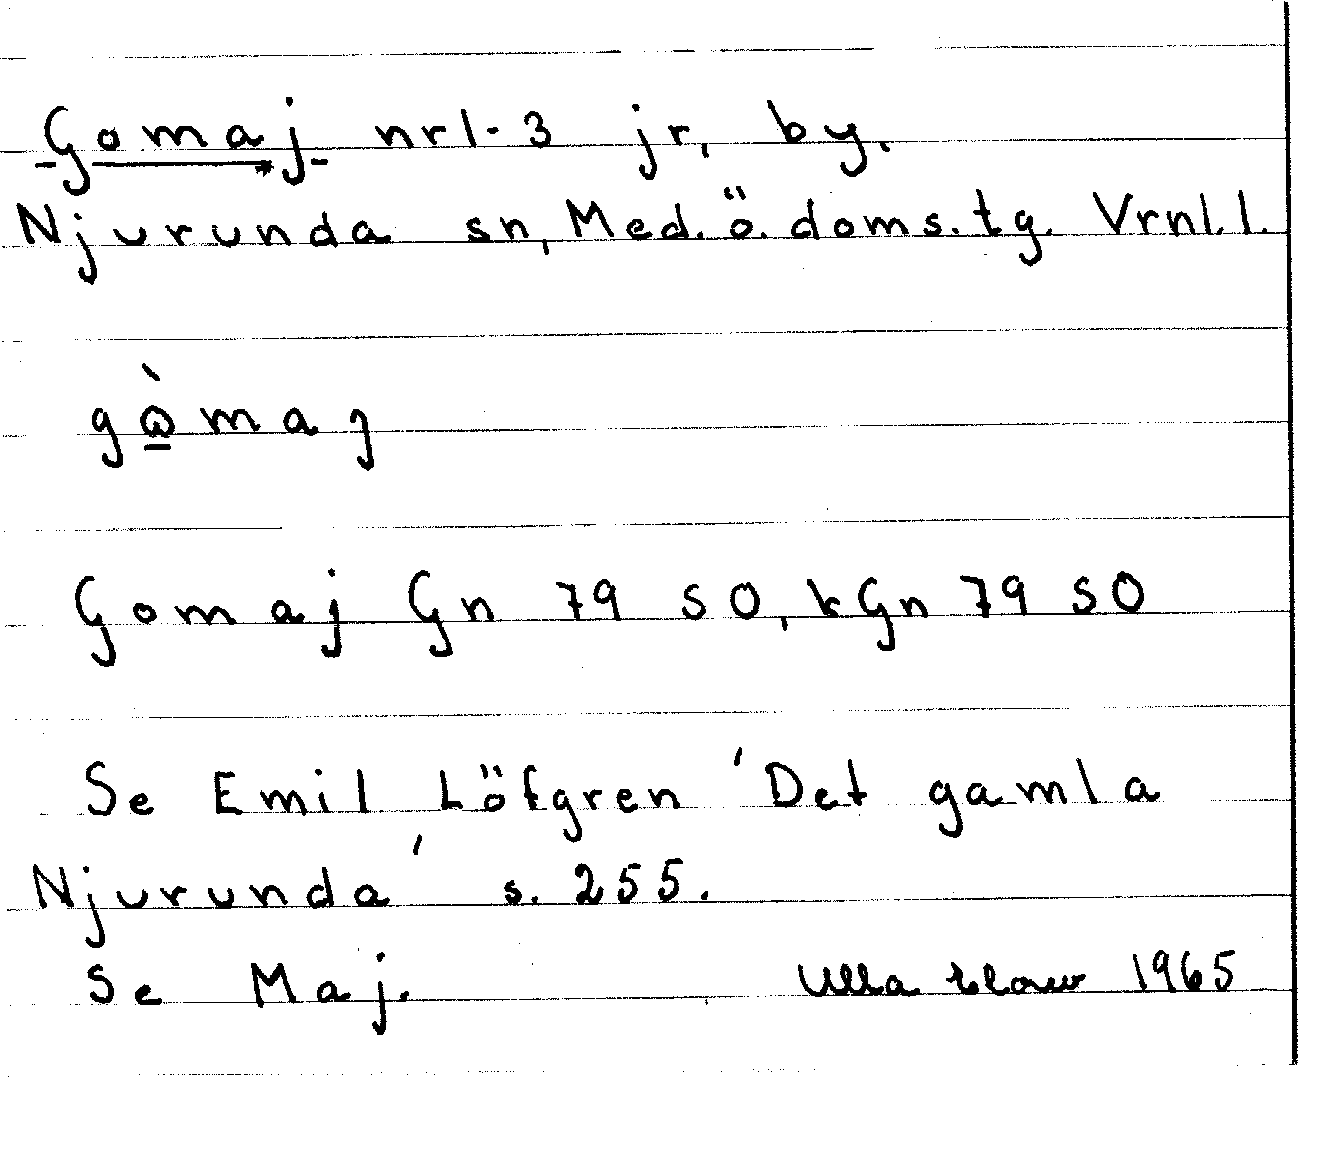 Gomaj nr 1-3 jr, by.
Njurunda sn, Med. ö. doms. tg. Vrnl. l.
gὼ̲maȷ
Gomaj Gn 79 SO, kGn 79 SO
Se Emil Löfgren 'Det gamla
Njurunda' s. 255.
Se Maj. Ulla 1965